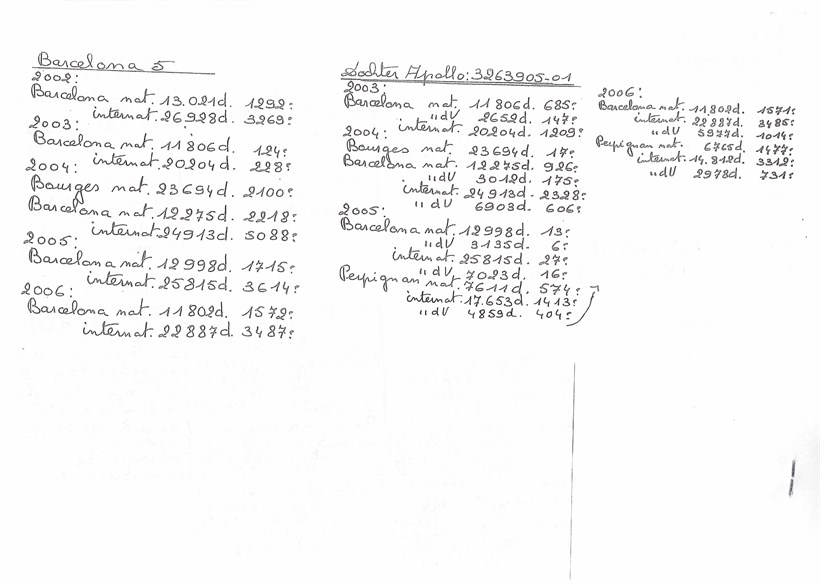 Barcelona 5
2002:
Barcelona nat. 13.021d. 1292e
internat. 26928d. 3269e
2003:
Barcelona nat. 11806d. 124e
internat. 20204d. 228e
2004:
Bourges nat. 23694d. 2100e
Barcelona nat. 12275d. 2218e
internat. 24913d. 5088e
2005:
Barcelona nat. 12998d. 1715e
internat. 25815d. 3614e
2006:
Barcelona nat. 11802d. 1572e
internat. 22887d. 3487e
Dochter Apollo: 3263905-01
2003:
Barcelona nat. 11806d. 685e
"dV 2652d. 147e
internat. 20204d. 1209e
2004:
Bourges nat. 23694d. 17e
Barcelona nat. 12275d. 926e
"dV 3012d. 175e
internat. 24913d. 2328e
"dV 6903d. 606e
2005:
Barcelona nat. 12998d. 13e
"dV 3135d. 6e
internat. 25815d. 27e
"dV 7023d. 16e
Perpignan nat. 7611d. 574e
internat. 17.653d. 1413e
"dV 4859d. 404e
2006:
Barcelona nat. 11802d. 1571e
internat. 22887d. 3486e
"dV 5977d. 1014e
Perpignan nat. 6765d. 1477e
internat. 14.812d. 3312e
"dV 2978d. 731e